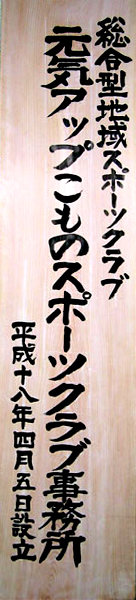 総合型地域スポーツクラブ
元気アップこものスポーツクラブ事務所
平成十八年四月五日設立